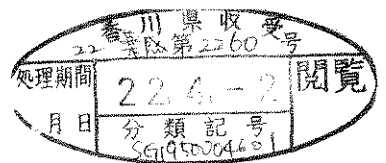 香川県収受
22 第2260号
処理期間
22.4.-2
閲覧
月 日
分類記号
SG1950004601